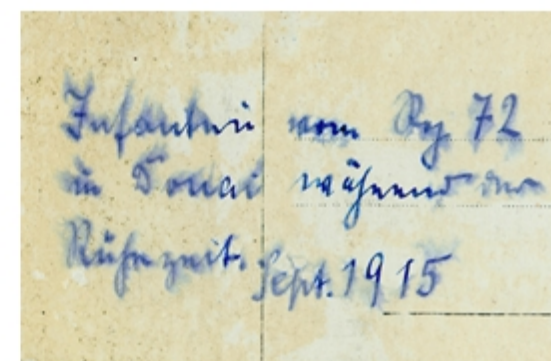 Infanterie vom Rg. 72
in Douai während der
Ruhezeit. Sept. 1915